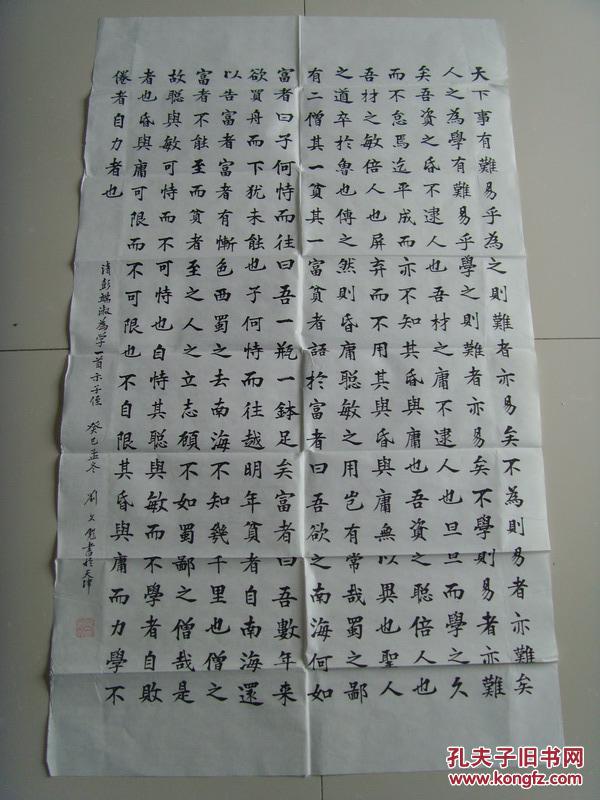 天下事有難易乎為之則難者亦易矣不為則易者亦難矣
人之為學有難易乎學之則難者亦易矣不學則易者亦難
矣吾資之昏不逮人也吾材之庸不逮人也旦旦而學之久
而不怠焉迄乎成而亦不知其昏與庸也吾資之聰倍人也
吾材之敏倍人也屏弃而不用其與昏與庸無以異也聖人
之道卒於魯也傳之然則昏庸聰敏之用豈有常哉蜀之鄙
有二僧其一貧其一富貧者語於富者曰吾欲之南海何如
富者曰子何恃而往曰吾一瓶一鉢足矣富者曰吾數年来
欲買舟而下犹未能也子何恃而往越明年貧者自南海還
以告富者富者有慚色西蜀之去南海不知幾千里也僧之
富者不能至而貧者至之人之立志顧不如蜀鄙之僧哉是
故聰與敏可恃而不可恃也自恃其聰與敏而不學者自敗
者也昏與庸可限而不可限也不自限其昏與庸而力學不
倦者自力者也
清彭端淑為学一首示子侄 癸巳孟冬 劉文 書於天津
孔夫子旧书网
www.kongfz.com